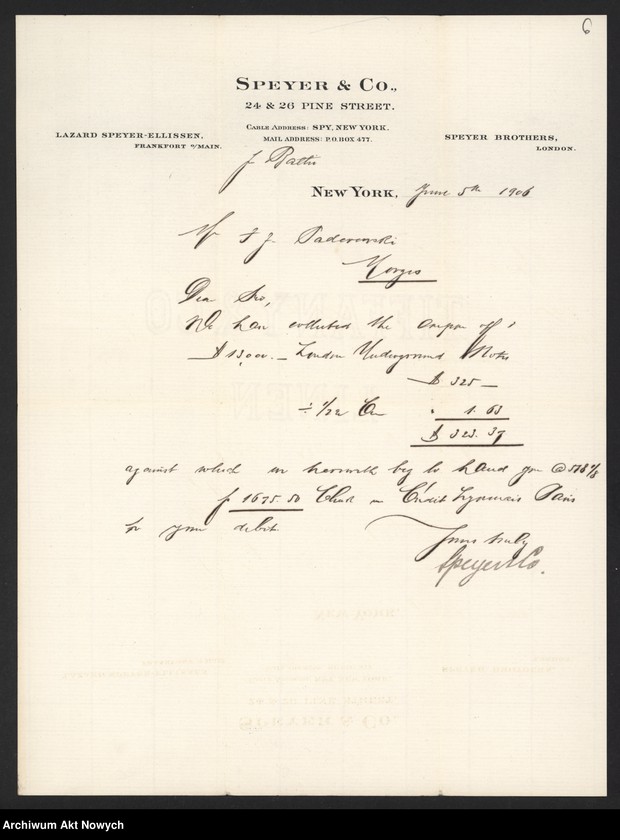 6
SPEYER & CO.,
24 & 26 PINE STREET.
CABLE ADDRESS: SPY, NEW YORK.
MAIL ADDRESS: P.O. BOX 477.
LAZARD SPEYER-ELLISSEN,
FRANKFORT o/MAIN.
SPEYER BROTHERS,
LONDON.
NEW YORK, June 5th 1906
Mr I J Paderewski
Morges
Dear Sir,
We have collected the coupon off
$ 13,000.— London Underground Notes
$ 325 —
÷ 1/2% Com " 1.63
$ 323.37
against which we herewith beg to hand you @ 518 1/8
f 1675.50 Check on Crédit Lyonnais Paris
for your debit
Yours truly
Speyer & Co.
TIFFANY & CO
LINEN
Archiwum Akt Nowych